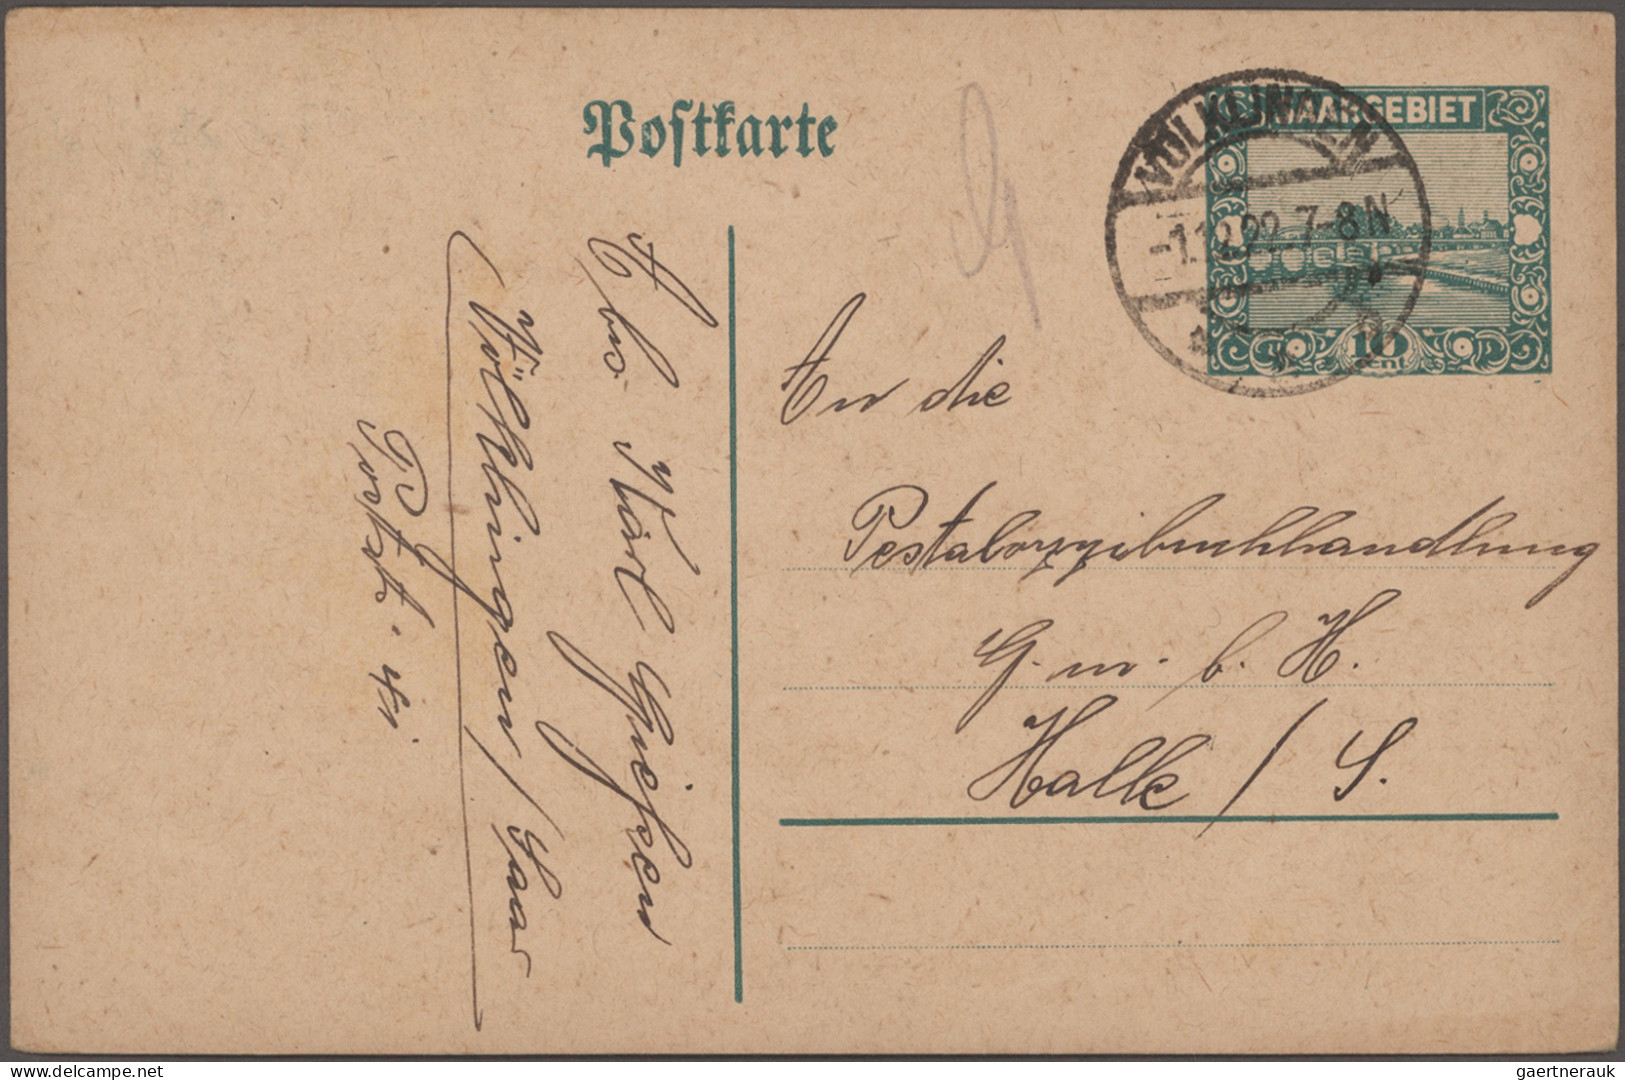 Postkarte
SAARGEBIET
10
Cent
VÖLKLINGEN
-1.12.22.7-8N
An die
Pestalozzibuchhandlung
G. m. b. H.
Halle / S.
Abs. Karl
Völklingen / Saar
delcampe.net
gaertnerauk